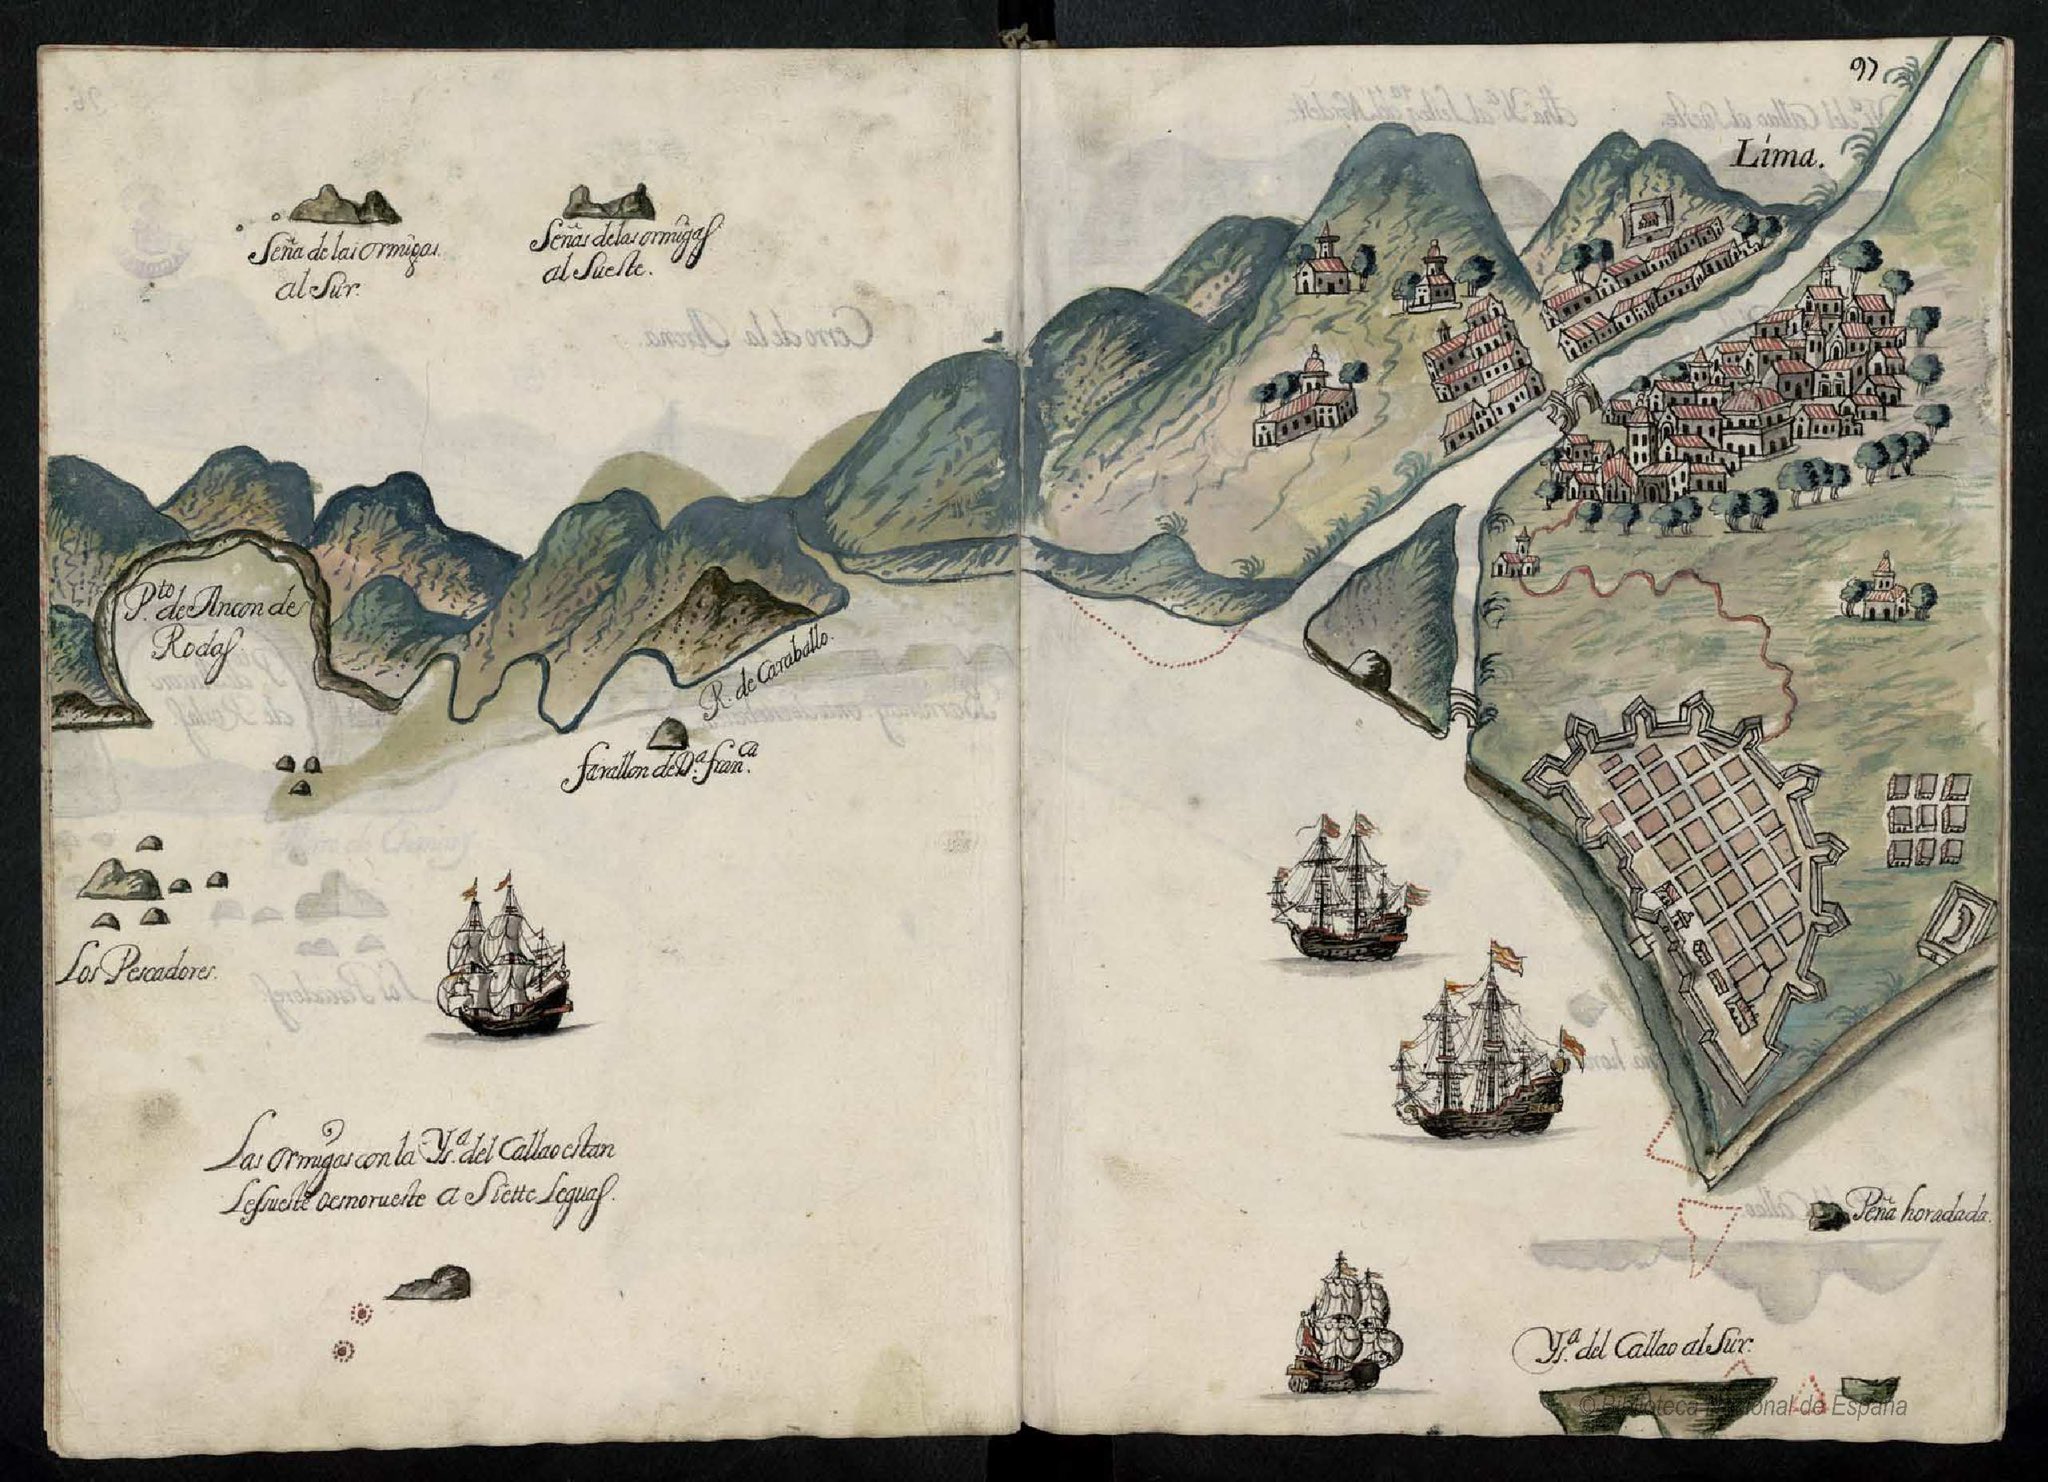 97
Lima.
Señа de las ormigas
al Sur.
Señas de las ormigas
al Sueste.
P.to de Ancon de
Rodas.
R. de Caraballo.
farallon de D.ª fran.ca
Los Pescadores.
Las ormigas con la Ysª. del Callao estan
Lesueste oesnorueste a Siette Leguas.
Peña horadada.
Ysª. del Callao al Sur.
© Biblioteca Nacional de España